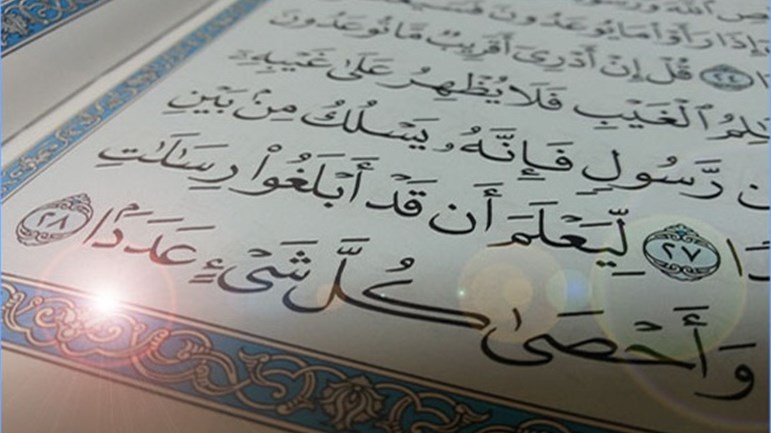 ص ٱللَّهَ وَرِسَ
إِذَا رَأَوْا۟ مَا يُوعَدُونَ فَسَيَ
ا ٢٤ قُلْ إِنْ أَدْرِىٓ أَقَرِيبٌ مَّا تُوعَدُونَ
لِمُ ٱلْغَيْبِ فَلَا يُظْهِرُ عَلَىٰ غَيْبِهِۦٓ
ن رَّسُولٍ فَإِنَّهُۥ يَسْلُكُ مِنۢ بَيْنِ
دًا ٢٧ لِّيَعْلَمَ أَن قَدْ أَبْلَغُوا۟ رِسَٰلَٰتِ
وَأَحْصَىٰ كُلَّ شَىْءٍ عَدَدًۢا ٢٨